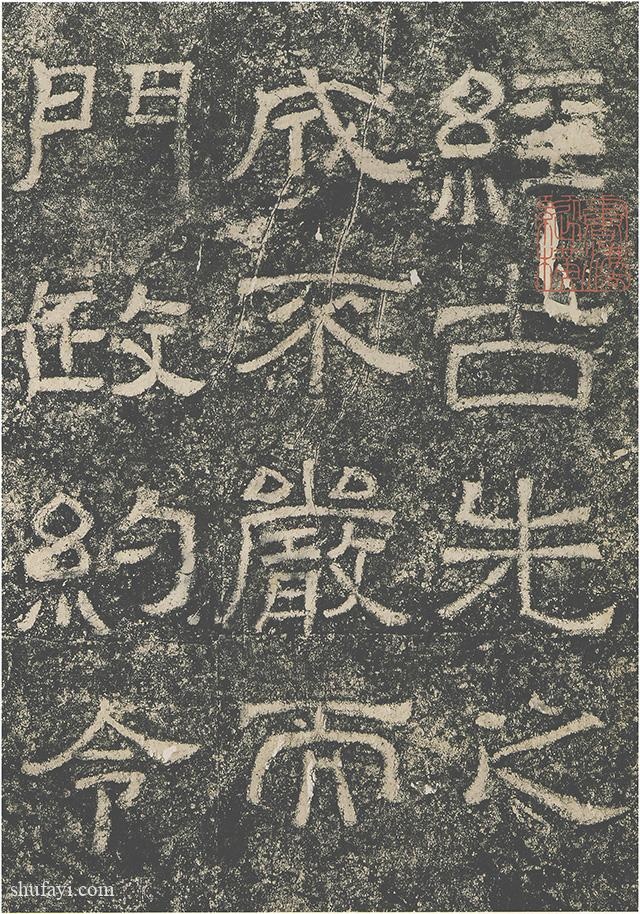 經古先之
成不嚴而
門政約令
shufayi.com